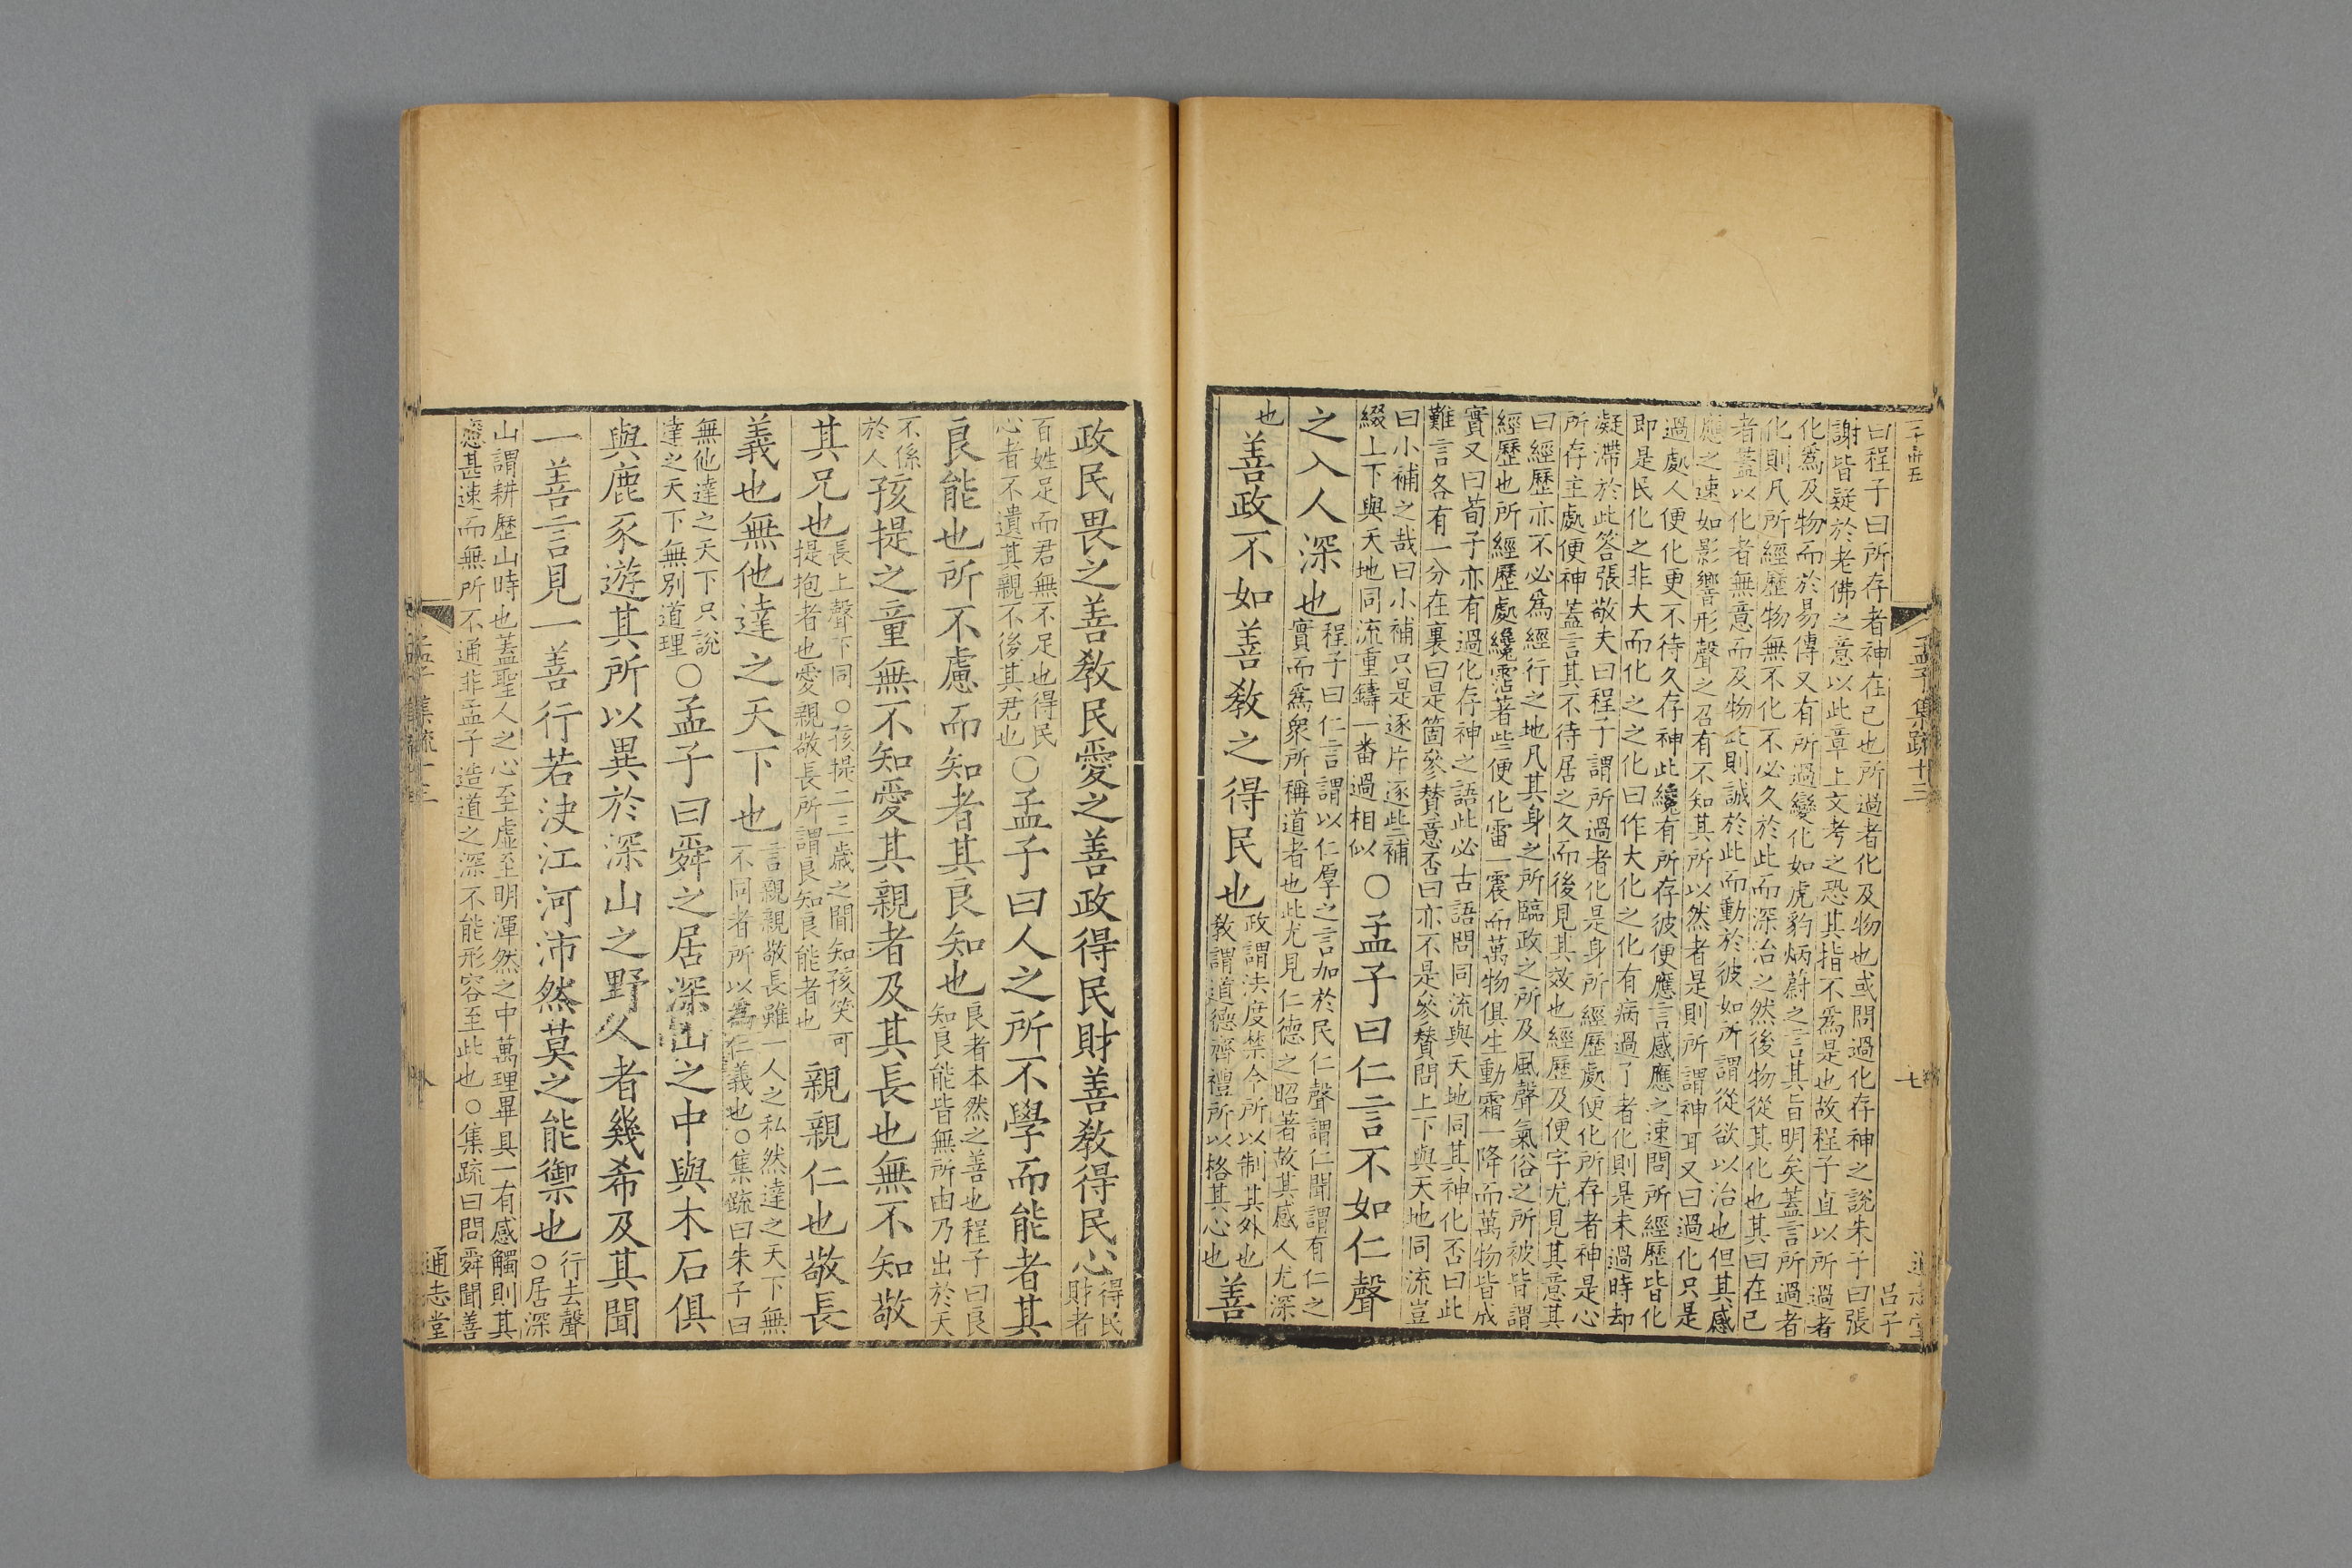 三千卌五
孟子集疏十三
七
通志堂
呂子
曰程子曰所存者神在己也所過者化及物也或問過化存神之說朱子曰張
謝皆疑於老佛之意以此章上文考之恐其指不爲是也故程子直以所過者
化爲及物而於易傳又有所過變化如虎豹炳蔚之言其旨明矣蓋言所過者
化則凡所經歷物無不化不必久於此而深治之然後物從其化也其曰在己
者蓋以化者無意而及物此則誠於此而動於彼如所謂從欲以治也但其感
應之速如影響形聲之召有不知其所以然者是則所謂神耳又曰過化只是
過處人便化更不待久存神此纔有所存彼便應言感應之速問所經歷皆化
即是民化之非大而化之之化曰作大化之化有病過了者化則是未過時却
凝滯於此答張敬夫曰程子謂所過者化是身所經歷處便化所存者神是心
所存主處便神蓋言其不待居之久而後見其效也經歷及便字尤見其意其
曰經歷亦不必爲經行之地凡其身之所臨政之所及風聲氣俗之所被皆謂
經歷也所經歷處纔霑著些便化雷一震而萬物俱生動霜一降而萬物皆成
實又曰荀子亦有過化存神之語此必古語問同流與天地同其神化否曰此
難言各有一分在裏曰是箇參贊意否曰亦不是參贊問上下與天地同流豈
曰小補之哉曰小補只是逐片逐些補
綴上下與天地同流重鑄一番過相似
○孟子曰仁言不如仁聲
之入人深也
程子曰仁言謂以仁厚之言加於民仁聲謂仁聞謂有仁之
實而爲衆所稱道者也此尤見仁德之昭著故其感人尤深
也
善政不如善教之得民也
政謂法度禁令所以制其外也
教謂道德齊禮所以格其心也
善
政民畏之善教民愛之善政得民財善教得民心
得民
財者
百姓足而君無不足也得民
心者不遺其親不後其君也
○孟子曰人之所不學而能者其
良能也所不慮而知者其良知也
良者本然之善也程子曰良
知良能皆無所由乃出於天
不係
於人
孩提之童無不知愛其親者及其長也無不知敬
其兄也
長上聲下同○孩提二三歲之間知孩笑可
提抱者也愛親敬長所謂良知良能者也
親親仁也敬長
義也無他達之天下也
言親親敬長雖一人之私然達之天下無
不同者所以爲仁義也○集疏曰朱子曰
無他達之天下只說
達之天下無別道理
○孟子曰舜之居深山之中與木石俱
與鹿豕遊其所以異於深山之野人者幾希及其聞
一善言見一善行若決江河沛然莫之能禦也
行去聲
○居深
山謂耕歷山時也蓋聖人之心至虛至明渾然之中萬理畢具一有感觸則其
應甚速而無所不通非孟子造道之深不能形容至此也○集疏曰問舜聞善
孟子集疏十三
八
通志堂